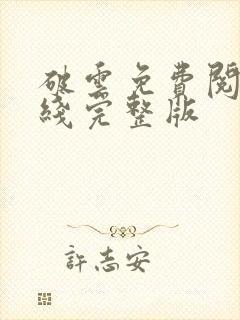 破雲免費閱
綫完整版
許志安